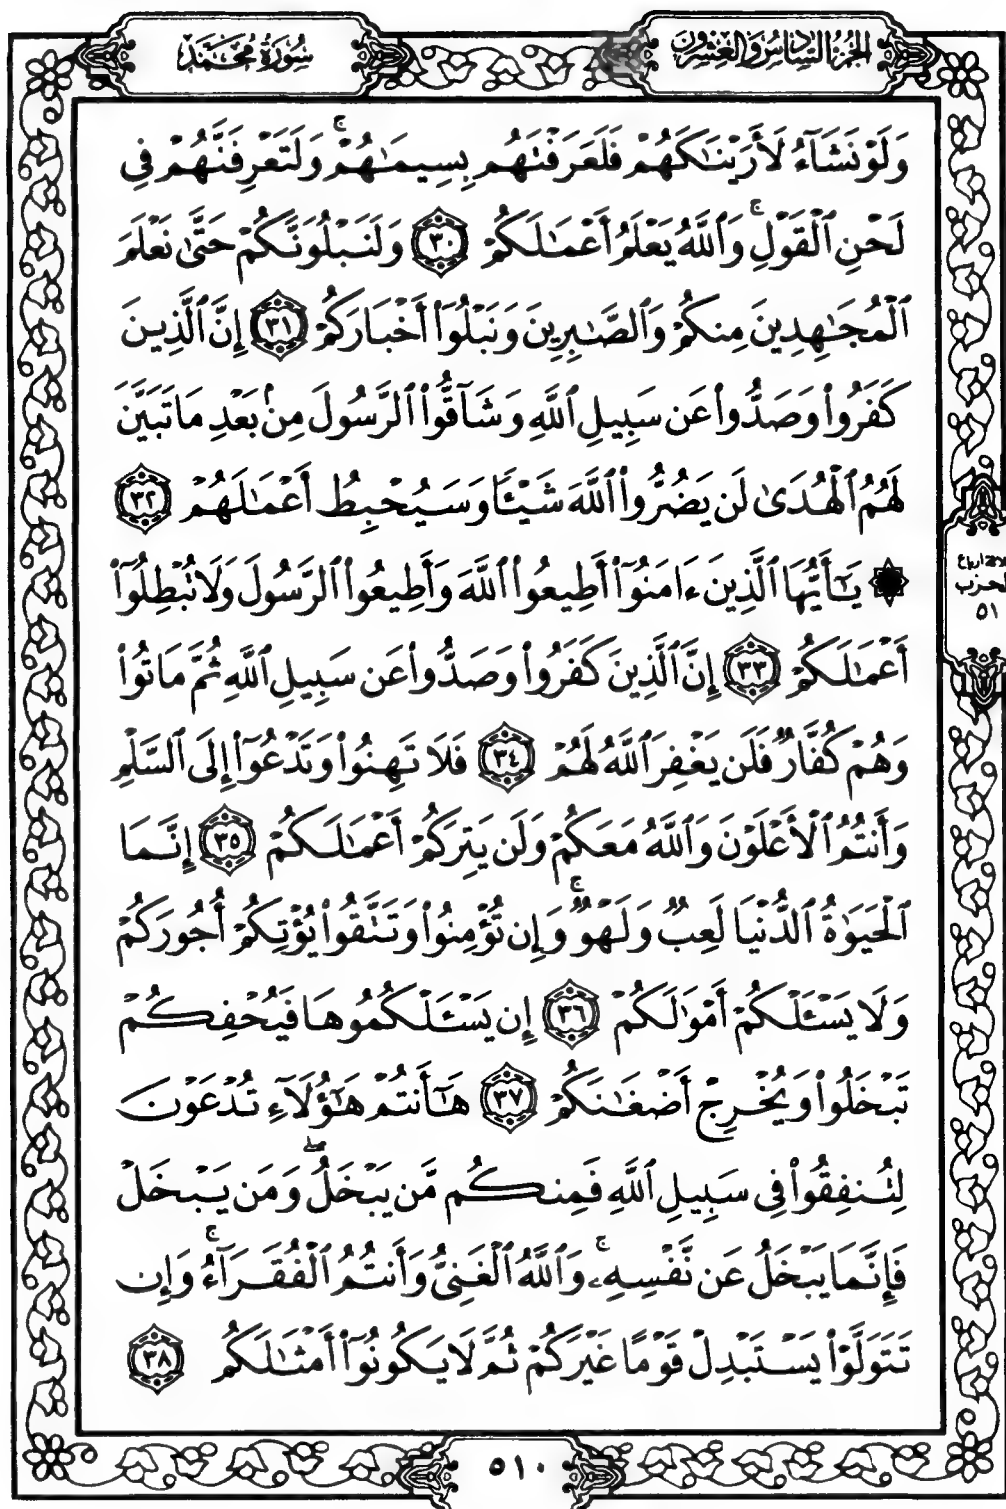 الجزء السادس والعشرون
سورة محمد
وَلَوْ نَشَآءُ لَأَرَيْنَٰكَهُمْ فَلَعَرَفْتَهُم بِسِيمَٰهُمْ ۚ وَلَتَعْرِفَنَّهُمْ فِى
لَحْنِ ٱلْقَوْلِ ۚ وَٱللَّهُ يَعْلَمُ أَعْمَٰلَكُمْ ٣٠ وَلَنَبْلُوَنَّكُمْ حَتَّىٰ نَعْلَمَ
ٱلْمُجَٰهِدِينَ مِنكُمْ وَٱلصَّٰبِرِينَ وَنَبْلُوَا۟ أَخْبَارَكُمْ ٣١ إِنَّ ٱلَّذِينَ
كَفَرُوا۟ وَصَدُّوا۟ عَن سَبِيلِ ٱللَّهِ وَشَآقُّوا۟ ٱلرَّسُولَ مِنۢ بَعْدِ مَا تَبَيَّنَ
لَهُمُ ٱلْهُدَىٰ لَن يَضُرُّوا۟ ٱللَّهَ شَيْـًٔا وَسَيُحْبِطُ أَعْمَٰلَهُمْ ٣٢
۞ يَٰٓأَيُّهَا ٱلَّذِينَ ءَامَنُوٓا۟ أَطِيعُوا۟ ٱللَّهَ وَأَطِيعُوا۟ ٱلرَّسُولَ وَلَا تُبْطِلُوٓا۟
أَعْمَٰلَكُمْ ٣٣ إِنَّ ٱلَّذِينَ كَفَرُوا۟ وَصَدُّوا۟ عَن سَبِيلِ ٱللَّهِ ثُمَّ مَاتُوا۟
وَهُمْ كُفَّارٌ فَلَن يَغْفِرَ ٱللَّهُ لَهُمْ ٣٤ فَلَا تَهِنُوا۟ وَتَدْعُوٓا۟ إِلَى ٱلسَّلْمِ
وَأَنتُمُ ٱلْأَعْلَوْنَ وَٱللَّهُ مَعَكُمْ وَلَن يَتِرَكُمْ أَعْمَٰلَكُمْ ٣٥ إِنَّمَا
ٱلْحَيَوٰةُ ٱلدُّنْيَا لَعِبٌ وَلَهْوٌ ۚ وَإِن تُؤْمِنُوا۟ وَتَتَّقُوا۟ يُؤْتِكُمْ أُجُورَكُمْ
وَلَا يَسْـَٔلْكُمْ أَمْوَٰلَكُمْ ٣٦ إِن يَسْـَٔلْكُمُوهَا فَيُحْفِكُمْ
تَبْخَلُوا۟ وَيُخْرِجْ أَضْغَٰنَكُمْ ٣٧ هَٰٓأَنتُمْ هَٰٓؤُلَآءِ تُدْعَوْنَ
لِتُنفِقُوا۟ فِى سَبِيلِ ٱللَّهِ فَمِنكُم مَّن يَبْخَلُ ۖ وَمَن يَبْخَلْ
فَإِنَّمَا يَبْخَلُ عَن نَّفْسِهِۦ ۚ وَٱللَّهُ ٱلْغَنِىُّ وَأَنتُمُ ٱلْفُقَرَآءُ ۚ وَإِن
تَتَوَلَّوْا۟ يَسْتَبْدِلْ قَوْمًا غَيْرَكُمْ ثُمَّ لَا يَكُونُوٓا۟ أَمْثَٰلَكُم ٣٨
أرباع
٥١
٥١٠